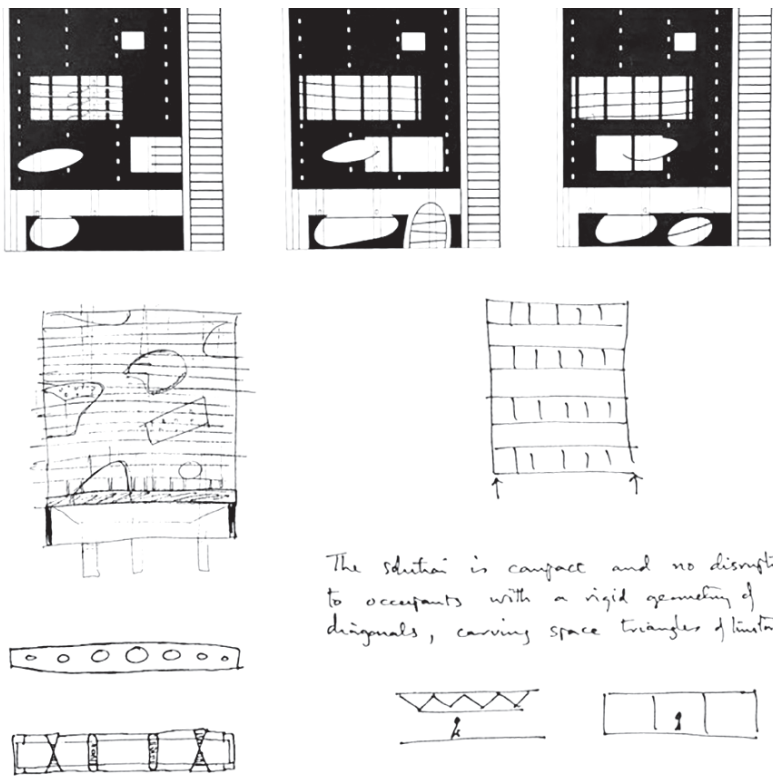 The solution is compact and no disrupti
to occupants with a rigid geometry of
diagonals, carving space triangles of